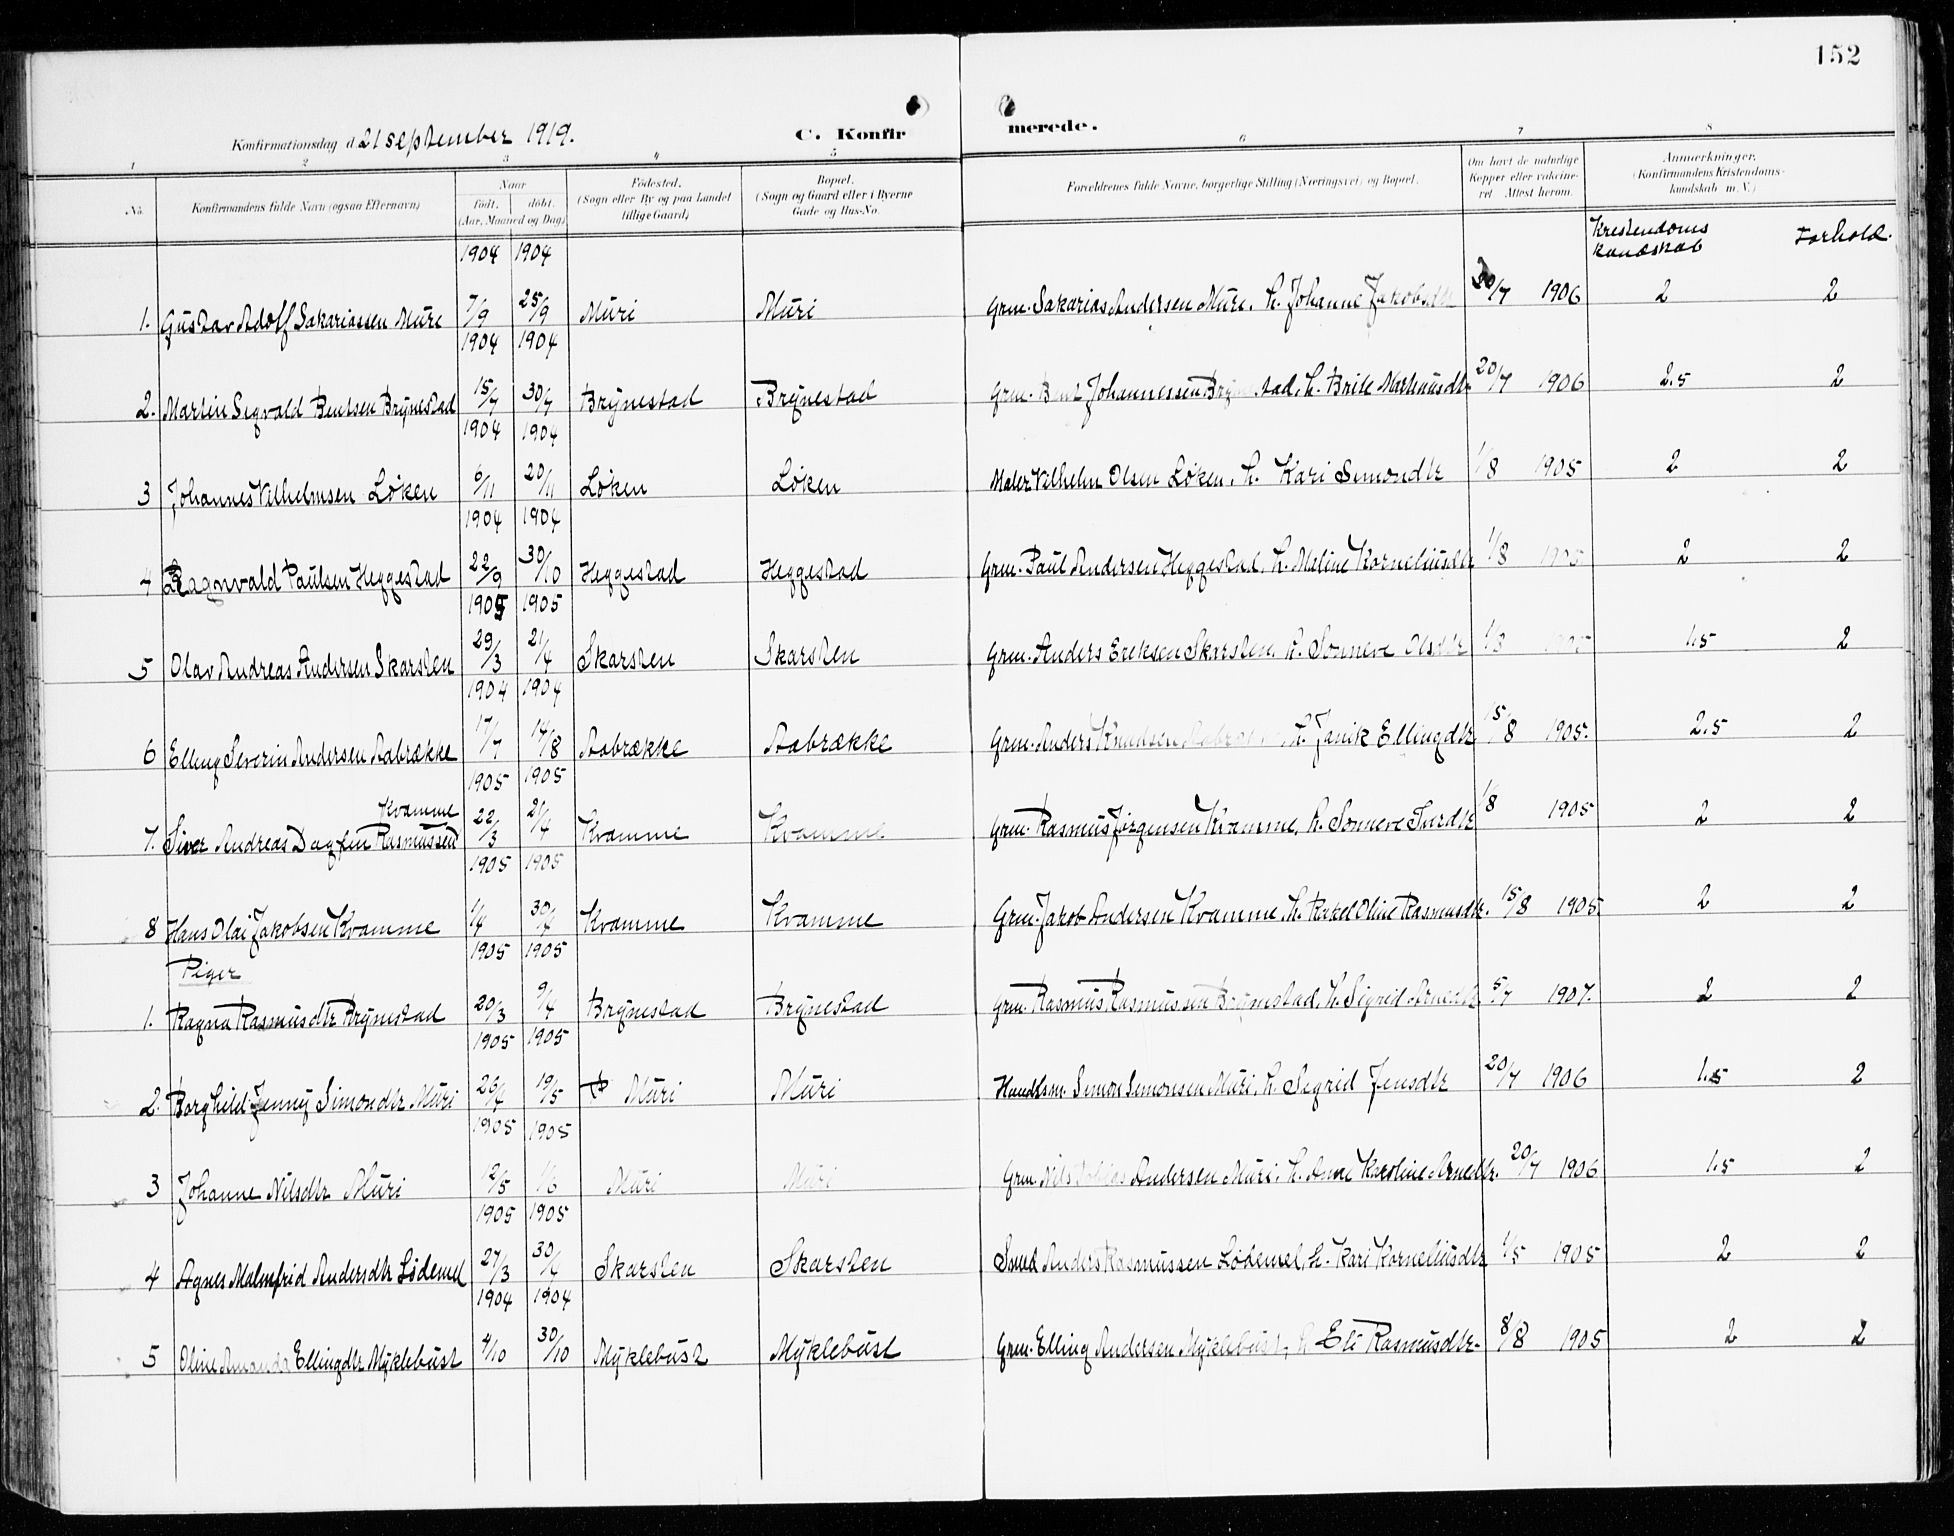 152
Konfirmationsdag d 21 september 1919.
C. Konfir merede.
1 2 3 4 5 6 7 8
No. Konfirmandens fulde Navn (ogsaa Efternavn) Naar født. døbt. (Aar, Maaned og Dag) Fødested. (Sogn eller By og paa Landet tillige Gaard) Bopæl. (Sogn og Gaard eller i Byerne Gade og Hus-No. Forældrenes fulde Navne, borgerlige Stilling (Næringsvei) og Bopæl. Om havt de naturlige Kopper eller vakcineret. Attest herom. Anmærkninger. (Konfirmandens Kristendomskundskab m. V.)
Kristendoms kundskab Forhold.
1904 1904
1. Gustav Adolf Sakariassen Muri 7/9 25/9 Muri Muri Grm. Sakarias Andersen Muri, h. Johanne Jakobsdtr 20/7 1906 2 2
1904 1904
2. Martin Sigvald Bentsen Brynestad 15/7 30/7 Brynestad Brynestad Grm. Bent Johannessen Brynestad, h. Brite Markusdtr 20/7 1906 2.5 2
1904 1904
3 Johannes Vilhelmsen Løken 6/11 20/11 Løken Løken Maler Vilhelm Olsen Løken, h. Kari Simondtr 1/8 1905 2 2
1904 1904
4 Ragnvald Paulsen Heggestad 22/9 30/10 Heggestad Heggestad Grm. Paul Andersen Heggestad, h. Maline Korneliusdtr 1/8 1905 2 2
1905 1905
5 Olav Andreas Andersen Skarsten 29/3 21/4 Skarsten Skarsten Grm. Anders Eriksen Skarsten, h. Sønneve Olsdtr 1/8 1905 1.5 2
1904 1904
6 Elling Severin Andersen Aabrække 17/7 14/8 Aabrække Aabrække Grm. Anders Knudsen Aabrække, h. Janik Ellingdtr 15/8 1905. 2.5 2
1905 1905
7. Siver Andreas Dagfin Rasmussen Kvamme 22/3 21/4 Kvamme Kvamme Grm. Rasmus Jørgensen Kvamme, h. Sønneve Siverdtr 1/8 1905 2 2
1905 1905
8 Hans Olai Jakobsen Kvamme 1/4 30/4 Kvamme Kvamme Grm. Jakob Andersen Kvamme, h. Rakel Oline Rasmusdtr. 15/8 1905. 2 2
Piger
1905 1905
1. Ragna Rasmusdtr Brynestad 20/3 9/4 Brynestad Brynestad Grm. Rasmus Rasmussen Brynestad, h. Sigrid Arnedtr 5/7 1907. 2 2
1905 1905
2. Borghild Jenny Simondtr Muri 26/4 19/5 Muri Muri Handlsm. Simon Simonsen Muri, h. Sigrid Jensdtr 20/7 1906 1.5 2
1905 1905
3 Johanne Nilsdtr Muri 12/5 1/6 Muri Muri Grm. Nils Andersen Muri, h. Karoline Arnedtr. 20/7 1906 1.5 2
1905 1905
4 Agnes Malmfrid Andersdtr Lødemel 27/3 30/4 Skarsten Skarsten Smed Anders Rasmussen Lødemel, h. Kari Korneliusdtr 1/5 1905 2 2
1904 1904
5 Oline Amanda Ellingdtr Myklebust 4/10 30/10 Myklebust Myklebust Grm. Elling Andersen Myklebust, h Eli Rasmusdtr 8/8 1905 2 2